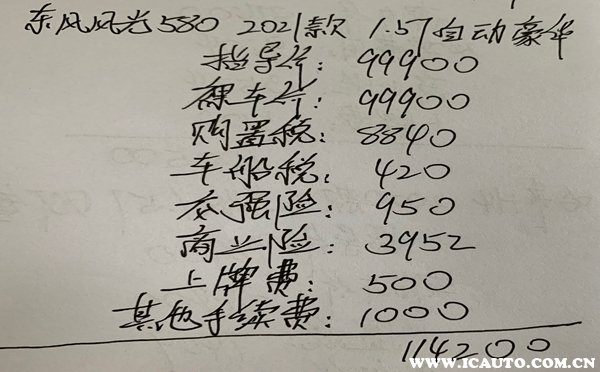 东风风光580 2021款 1.5T自动豪华
指导价: 99900
裸车价: 99900
购置税: 8840
车船税: 420
交强险: 950
商业险: 3952
上牌费: 500
其他手续费: 1000
114200
WWW.ICAUTO.COM.CN